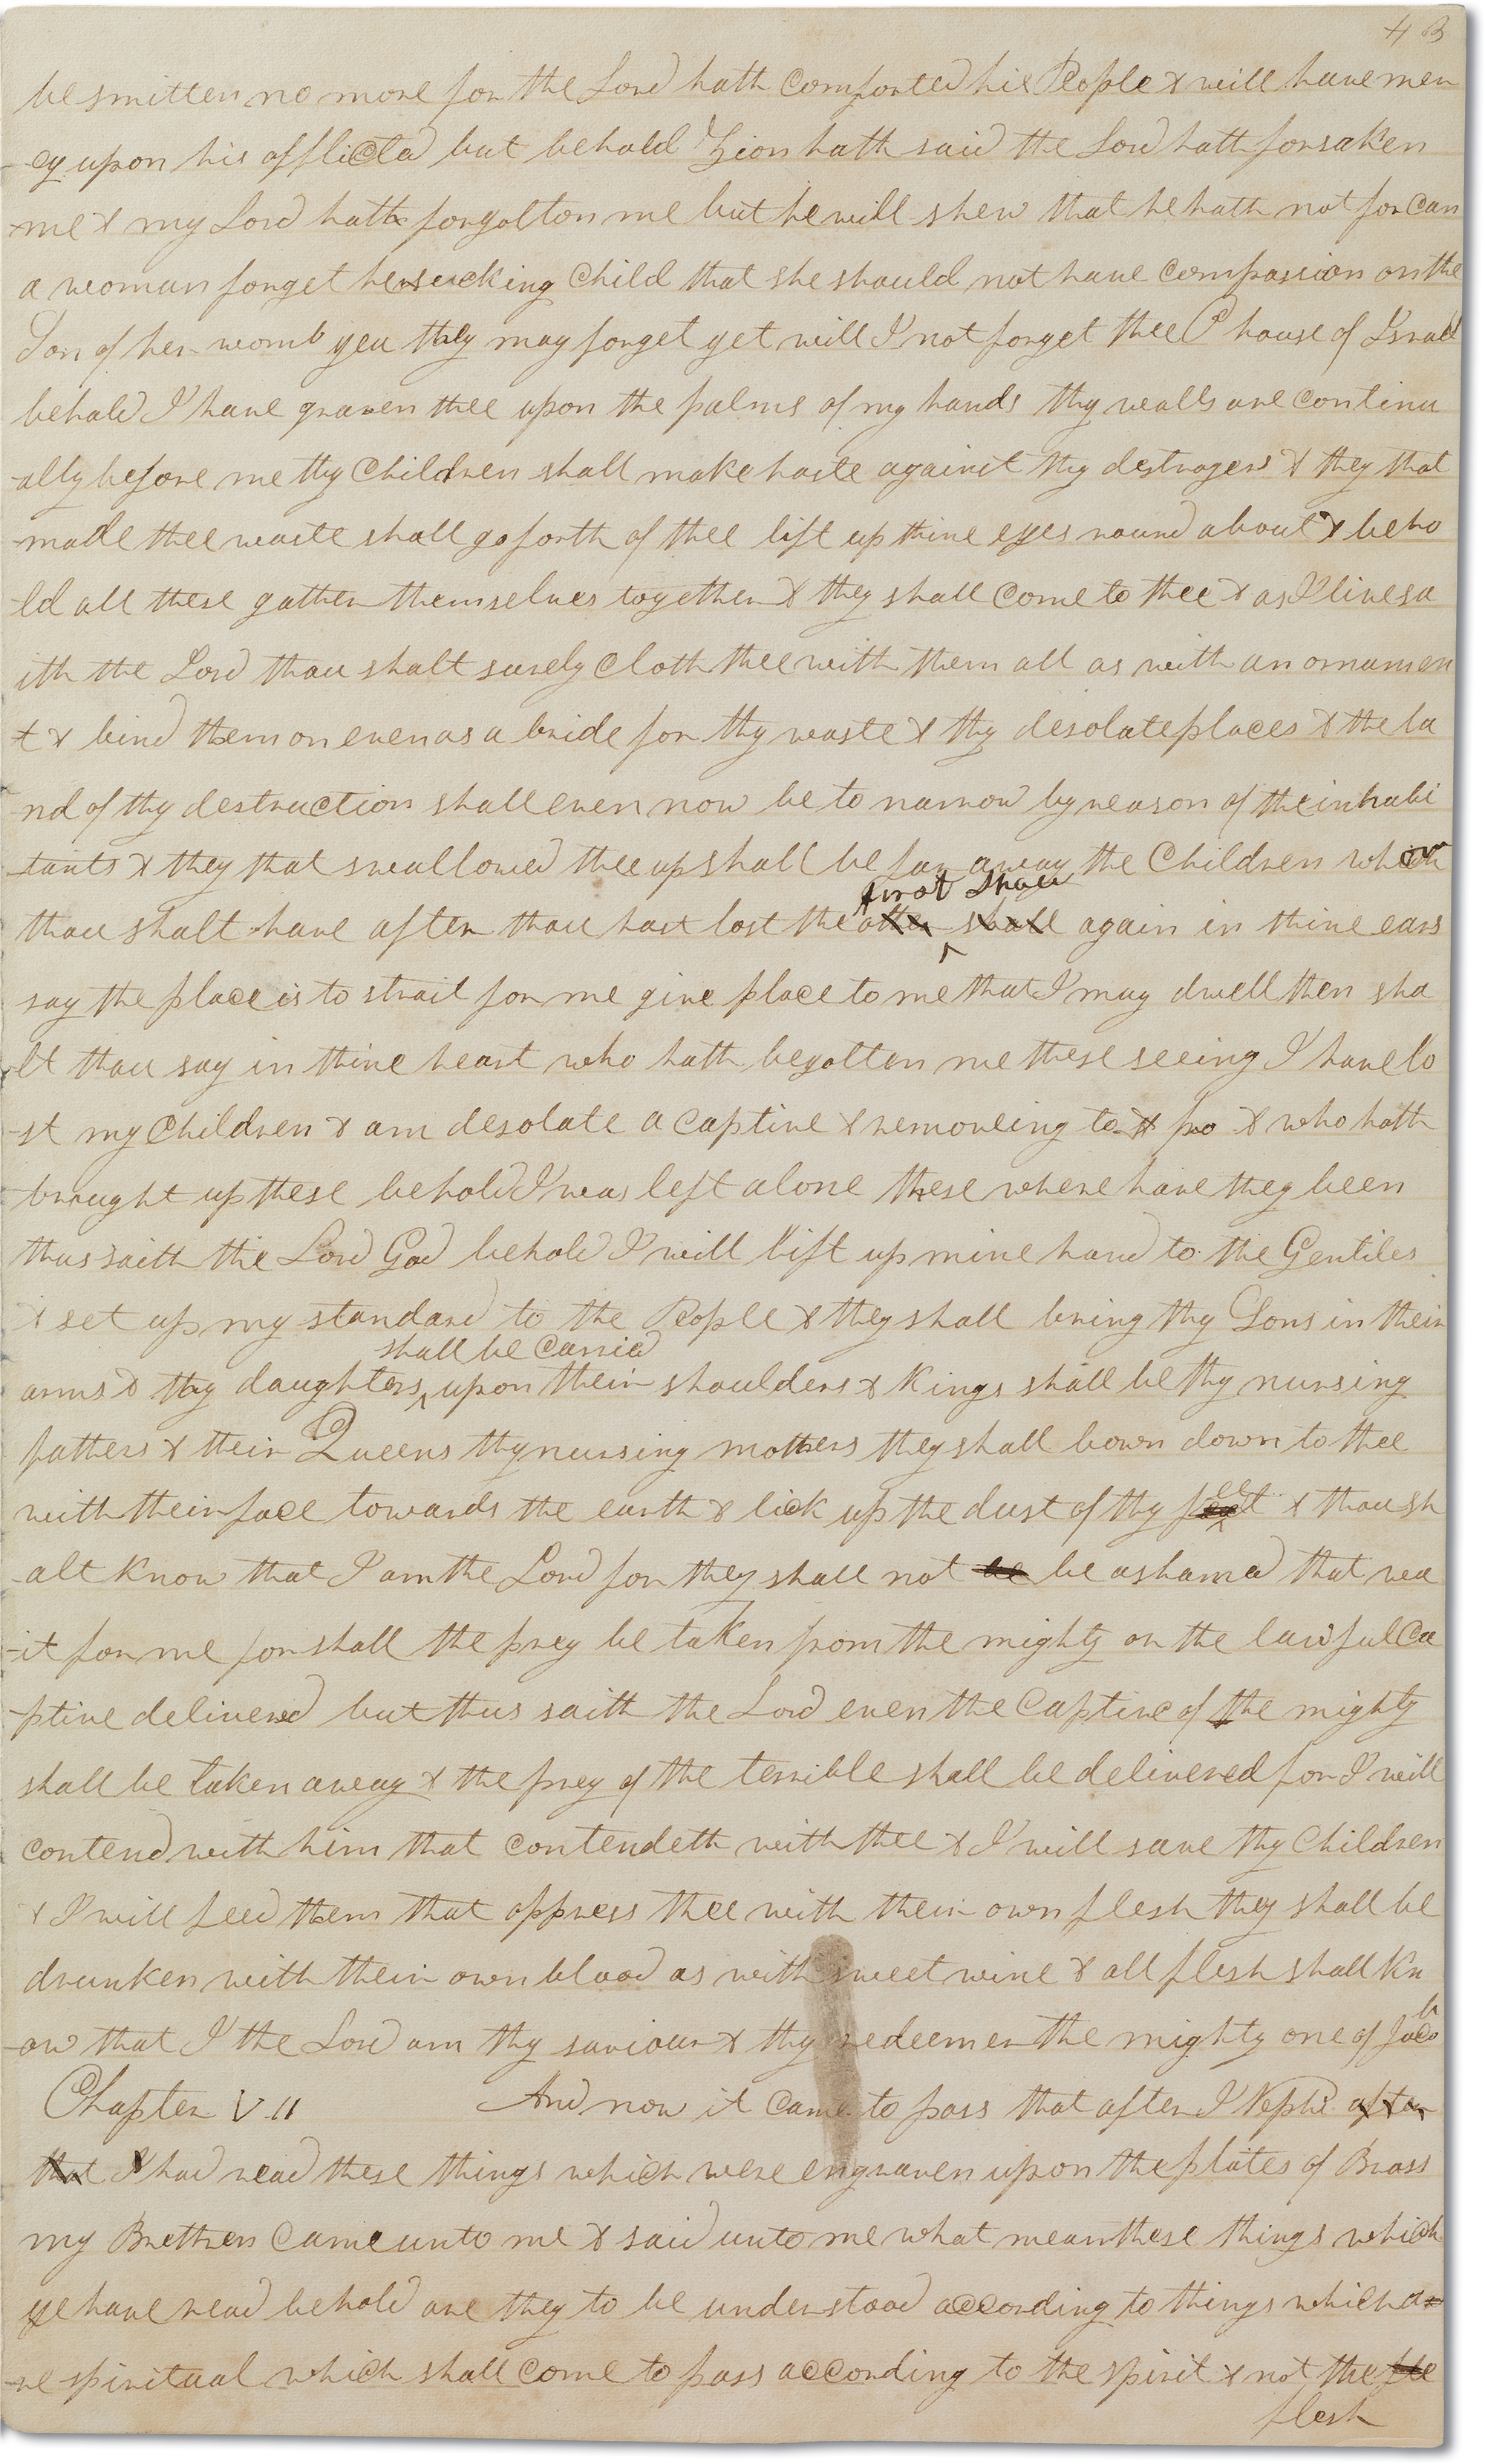 43
be smitten no more for the Lord hath comforted his People & will have mer
-cy upon his afflicted but behold Zion hath said the Lord hath forsaken
me & my Lord hath forgotton me but he will shew that he hath not for can
a woman forget her sucking Child that she should not have compassion on the
Son of her womb yea they may forget yet will I not forget thee O house of Israel
behold I have graven thee upon the palms of my hands thy walls are continu
-ally before me thy Children shall make haste against thy destroyers & they that
made thee waste shall go forth of thee lift up thine eyes round about & beho
-ld all these gather themselves together & they shall come to thee & as I live sa
ith the Lord thou shalt surely cloth thee with them all as with an ornamen
t & bind them on even as a bride for thy waste & thy desolate places & the la
nd of thy destruction shall even now be to narrow by reason of the inhabi
tants & they that swallowed thee up shall be far away the Children whom
first shall
thou shalt have after thou hast lost the other shall again in thine ears
say the place is to strait for me give place to me that I may dwell then sha
lt thou say in thine heart who hath begotten me these seeing I have lo
-st my Children & am desolate a captive & removeing to & fro & who hath
brought up these behold I was left alone these where have they been
thus saith the Lord God behold I will lift up mine hand to the Gentiles
& set up my standard to the People & they shall bring thy Sons in their
shall be carried
arms & thy daughters ^ upon their shoulders & Kings shall be thy nursing
fathers & their Queens thy nursing mothers they shall bown down to thee
with their face towards the earth & lick up the dust of thy feet & thou sh
-alt know that I am the Lord for they shall not be be ashamed that wa
-it for me for shall the prey be taken from the mighty or the lawful ca
-ptive delivered but thus saith the Lord even the captive of the mighty
shall be taken away & the prey of the terrible shall be delivered for I will
contend with him that contendeth with thee & I will save thy Children
& I will feed them that oppress thee with their own flesh they shall be
drunken with their own blood as with sweet wine & all flesh shall kn
-ow that I the Lord am thy saviour & thy redeemer the mighty one of Jacob
Chapter VII And now it came to pass that after I Nephi after
that I had read these things which were engraven upon the plates of Brass
my Brethren came unto me & said unto me what mean these things which
ye have read behold are they to be understood according to things which a
-re spiritual which shall come to pass according to the spirit & not the fle
flesh